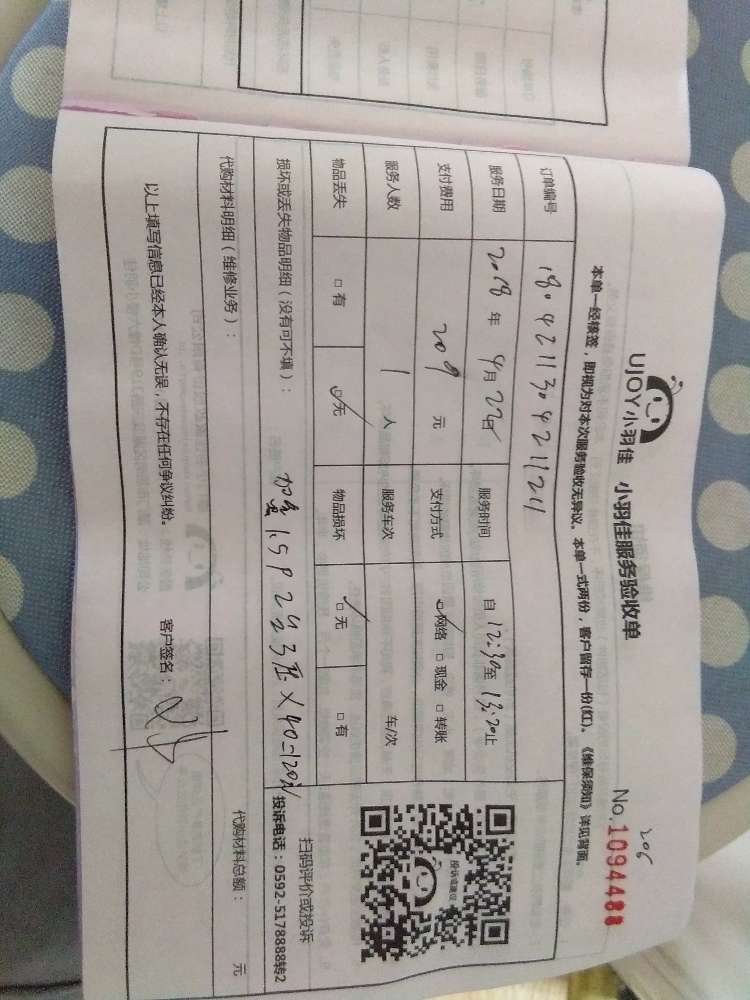 UJOY小羽佳 小羽佳服务验收单
206
No.1094488
本单一经核签，即视为对本次服务验收无异议。本单一式两份，客户留存一份(红)。《维保须知》详见背面。
订单编号 1804211304211211
服务日期 2018 年 4月 22日 服务时间 自 12:30至 13:20止
支付费用 209 元 支付方式 网络 现金 转账
服务人数 1 人 服务车次 车/次
物品丢失 有 无 物品损坏 无 有
损坏或丢失物品明细（没有可不填）：
1.5P 2 3 × 40=120元
扫码评价或投诉
投诉电话：0592-5178888转2
代购材料明细（维修业务）：
代购材料总额： 元
以上填写信息已经本人确认无误，不存在任何争议纠纷。
客户签名：